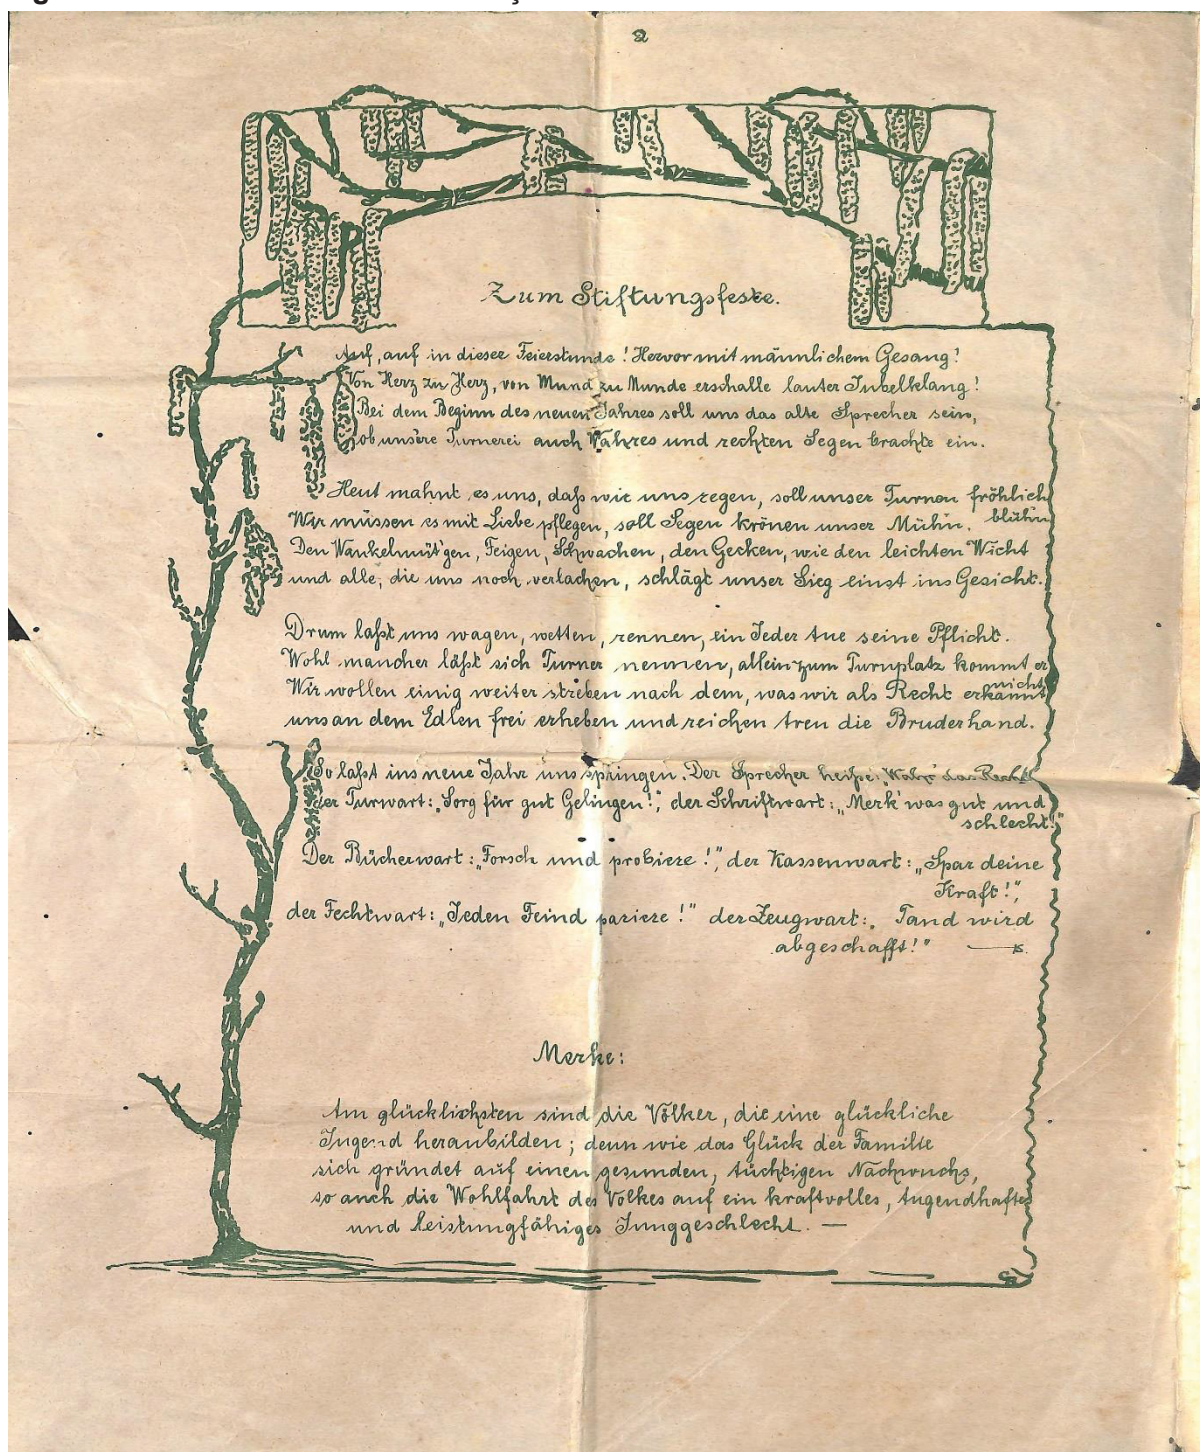 2
Zum Stiftungsfeste.
Auf, auf in dieser Feierstunde! Hervor mit männlichem Gesang!
Von Herz zu Herz, von Mund zu Munde erschalle lauter Jubelklang!
Bei dem Beginn des neuen Jahres soll uns das alte Sprecher sein,
ob unsere Turnerei auch Wahres und rechten Segen brachte ein.
Heut mahnt es uns, daß wir uns regen, soll unser Turnen fröhlich
blühn,
Wir müssen es mit Liebe pflegen, soll Segen krönen unser Mühn.
Den Wankelmüt'gen, Feigen, Schwachen, den Gecken, wie den leichten Wicht
und alle, die uns noch verlachen, schlägt unser Sieg einst ins Gesicht.
Drum laßt uns wagen, wetten, rennen, ein Jeder tue seine Pflicht.
Wohl mancher läßt sich Turner nennen, allein zum Turnplatz kommt er
nicht
Wir wollen einig weiter streben nach dem, was wir als Recht erkannt
uns an dem Edlen frei erheben und reichen treu die Bruderhand.
So laßt ins neue Jahr uns springen. Der Sprecher heiße: „Wahr' das Recht
der Turwart: „Sorg für gut Gelingen!", der Schriftwart: „Merk' was gut und
schlecht!"
Der Bücherwart: „Forsch und probiere!", der Kassenwart: „Spar deine
Kraft!",
der Fechtwart: „Jeden Feind pariere!" der Zeugwart: „Tand wird
abgeschafft!" —s.
Merke:
Am glücklichsten sind die Völker, die eine glückliche
Jugend heranbilden; denn wie das Glück der Familie
sich gründet auf einen gesunden, tüchtigen Nachwuchs,
so auch die Wohlfahrt des Volkes auf ein kraftvolles, tugendhaftes
und leistungfähiges Junggeschlecht. —